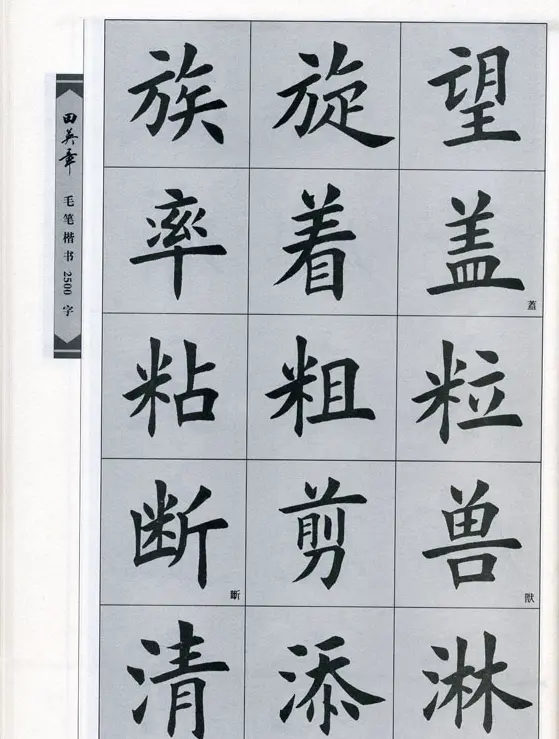 田英章
毛笔楷书2500字
族 旋 望
率 着 盖
蓋
粘 粗 粒
断 剪 兽
斷 獸
清 添 淋